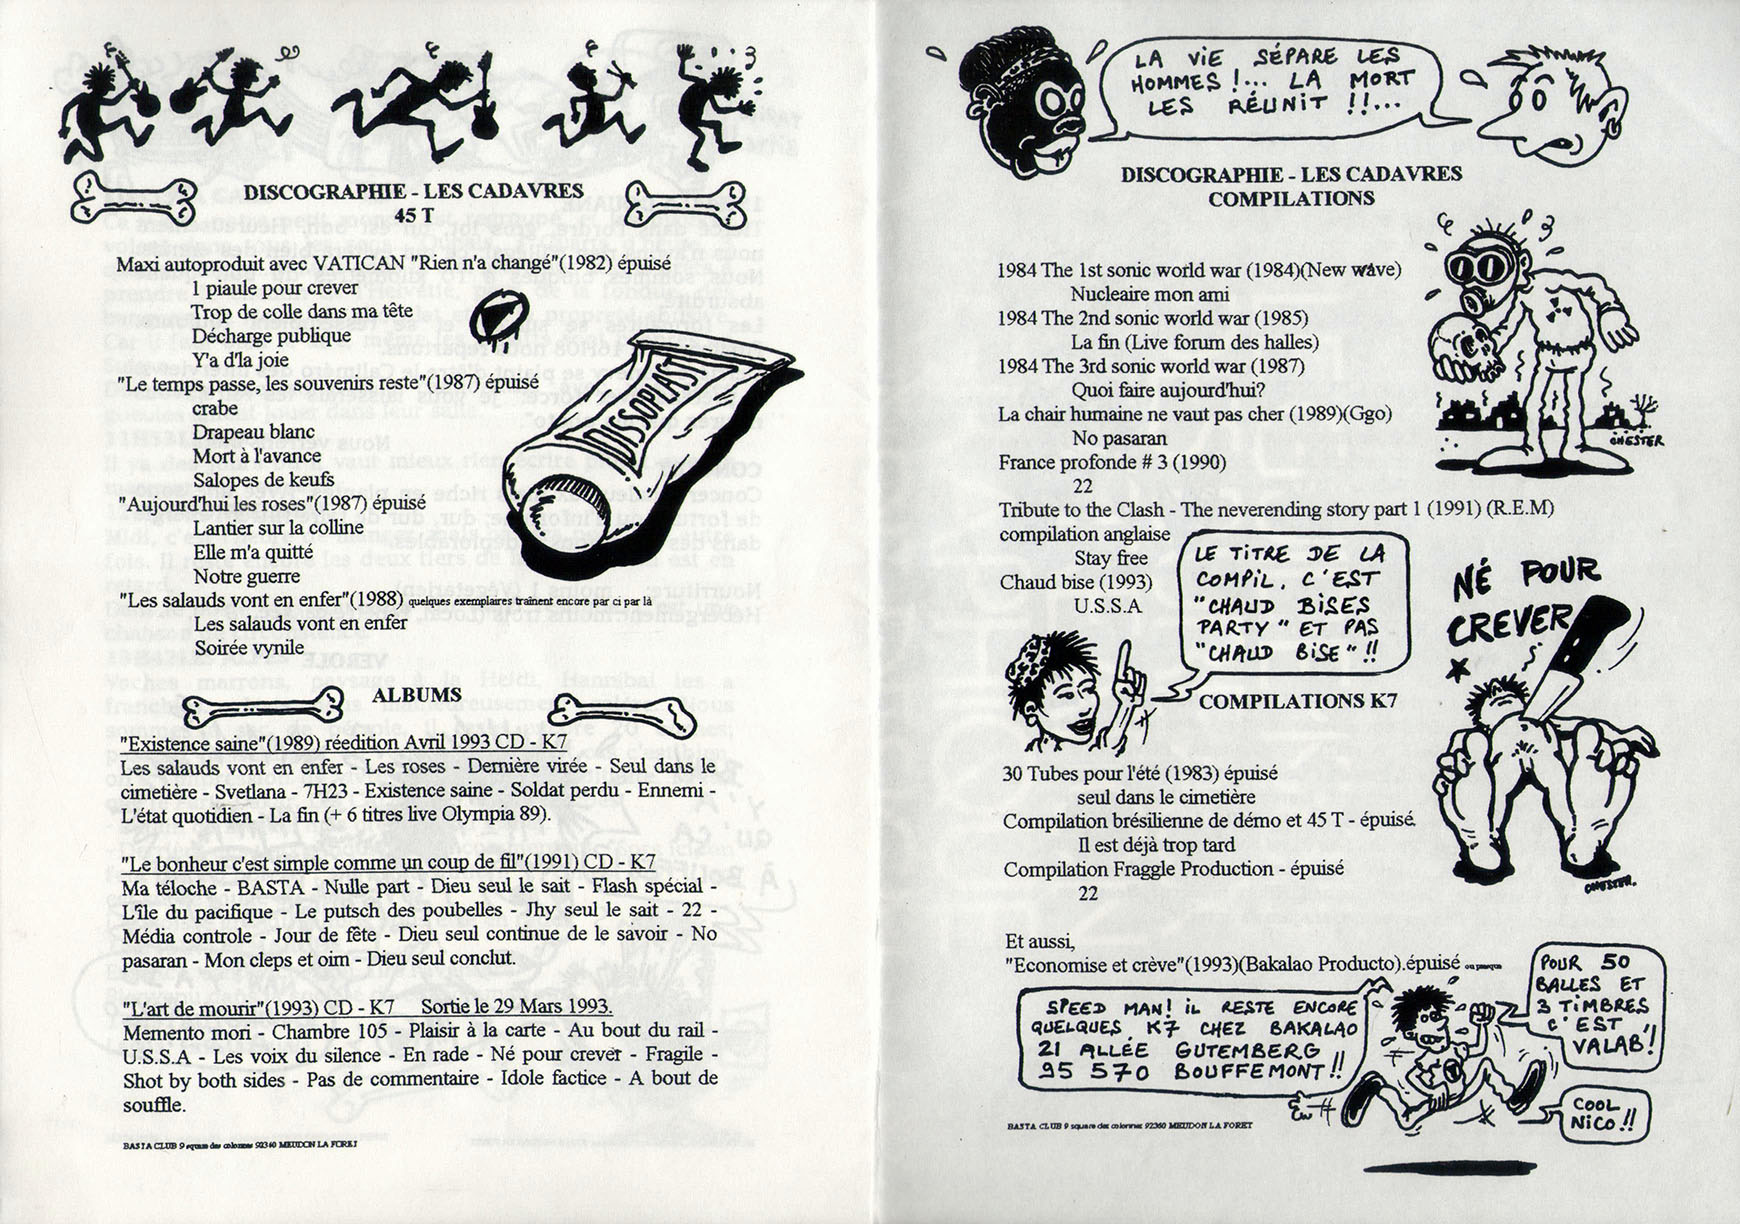 DISCOGRAPHIE - LES CADAVRES
45 T
Maxi autoproduit avec VATICAN "Rien n'a changé"(1982) épuisé
1 piaule pour crever
Trop de colle dans ma tête
Décharge publique
Y'a d'la joie
"Le temps passe, les souvenirs reste"(1987) épuisé
crabe
Drapeau blanc
Mort à l'avance
Salopes de keufs
"Aujourd'hui les roses"(1987) épuisé
Lantier sur la colline
Elle m'a quitté
Notre guerre
"Les salauds vont en enfer"(1988) quelques exemplaires traînent encore par ci par là
Les salauds vont en enfer
Soirée vynile
DISSOPLAST
ALBUMS
"Existence saine"(1989) réedition Avril 1993 CD - K7
Les salauds vont en enfer - Les roses - Dernière virée - Seul dans le
cimetière - Svetlana - 7H23 - Existence saine - Soldat perdu - Ennemi -
L'état quotidien - La fin (+ 6 titres live Olympia 89).
"Le bonheur c'est simple comme un coup de fil"(1991) CD - K7
Ma téloche - BASTA - Nulle part - Dieu seul le sait - Flash spécial -
L'île du pacifique - Le putsch des poubelles - Jhy seul le sait - 22 -
Média controle - Jour de fête - Dieu seul continue de le savoir - No
pasaran - Mon cleps et oim - Dieu seul conclut.
"L'art de mourir"(1993) CD - K7 Sortie le 29 Mars 1993.
Memento mori - Chambre 105 - Plaisir à la carte - Au bout du rail -
U.S.S.A - Les voix du silence - En rade - Né pour crever - Fragile -
Shot by both sides - Pas de commentaire - Idole factice - A bout de
souffle.
BASTA CLUB 9 square des colonnes 92360 MEUDON LA FORET
LA VIE SÉPARE LES
HOMMES !... LA MORT
LES RÉUNIT !!...
DISCOGRAPHIE - LES CADAVRES
COMPILATIONS
1984 The 1st sonic world war (1984)(New wave)
Nucleaire mon ami
1984 The 2nd sonic world war (1985)
La fin (Live forum des halles)
1984 The 3rd sonic world war (1987)
Quoi faire aujourd'hui?
La chair humaine ne vaut pas cher (1989)(Ggo)
No pasaran
France profonde # 3 (1990)
22
Tribute to the Clash - The neverending story part 1 (1991) (R.E.M)
compilation anglaise
Stay free
Chaud bise (1993)
U.S.S.A
CHESTER
LE TITRE DE LA
COMPIL, C'EST
"CHAUD BISES
PARTY" ET PAS
"CHAUD BISE" !!
NÉ POUR
CREVER
COMPILATIONS K7
30 Tubes pour l'été (1983) épuisé
seul dans le cimetière
Compilation brésilienne de démo et 45 T - épuisé.
Il est déjà trop tard
Compilation Fraggle Production - épuisé
22
CHESTER.
Et aussi,
"Economise et crève"(1993)(Bakalao Producto).épuisé ou presque
SPEED MAN! IL RESTE ENCORE
QUELQUES K7 CHEZ BAKALAO
21 ALLÉE GUTEMBERG
95 570 BOUFFEMONT!!
POUR 50
BALLES ET
3 TIMBRES
C'EST
VALAB'!
COOL
NICO!!
BASTA CLUB 9 square des colonnes 92360 MEUDON LA FORET